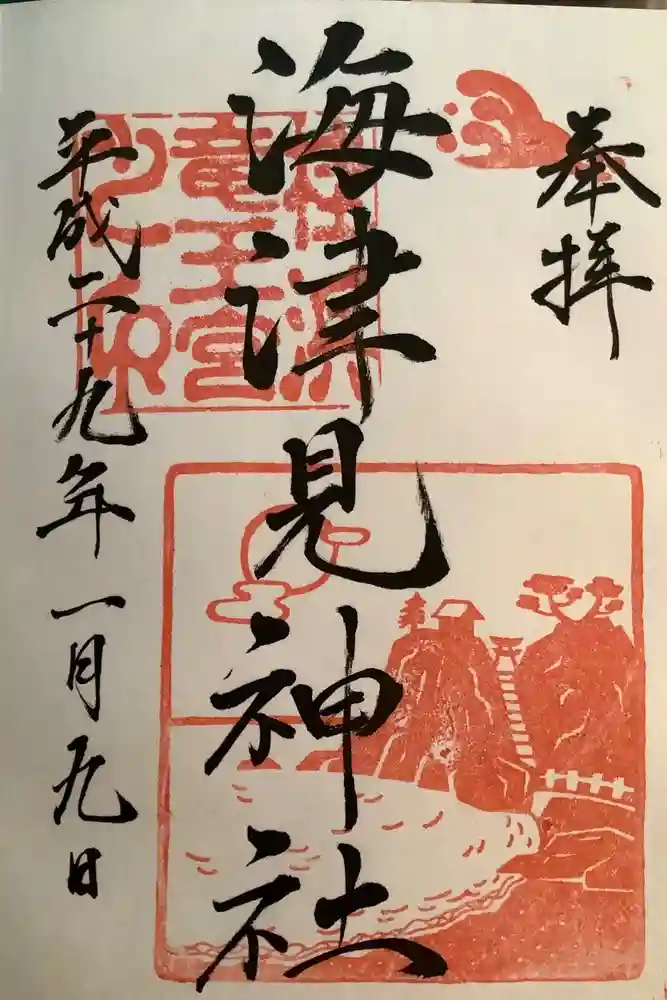 奉拝
海津見神社
桂浜
竜王宮
平成二十九年一月九日